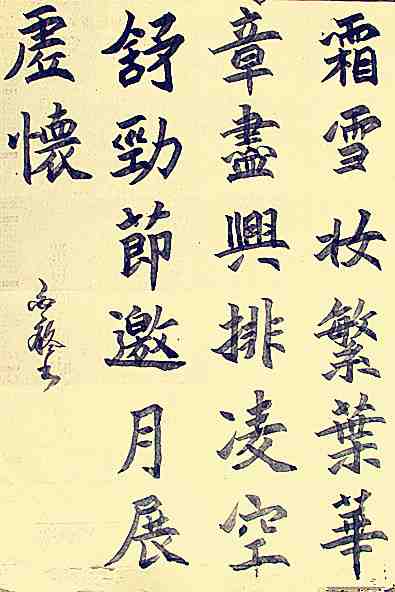 霜雪妆繁葉華
章盡興排凌空
舒勁節邀月展
虛懷